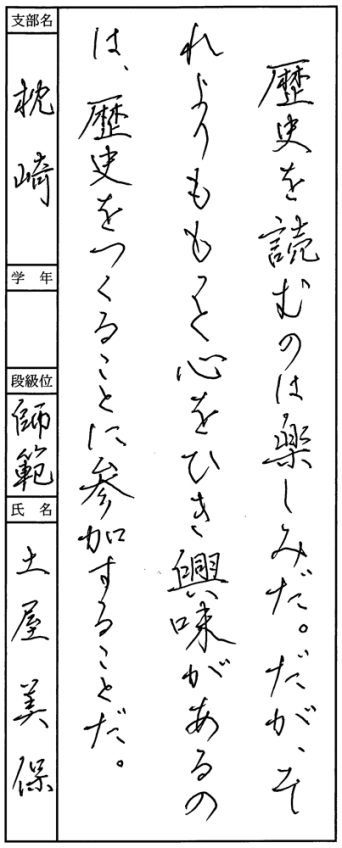 歴史を読むのは楽しみだ。だが、そ
れよりももっと心をひき興味があるの
は、歴史をつくることに参加することだ。
支部名
枕崎
学年
段級位
師範
氏名
土屋美保